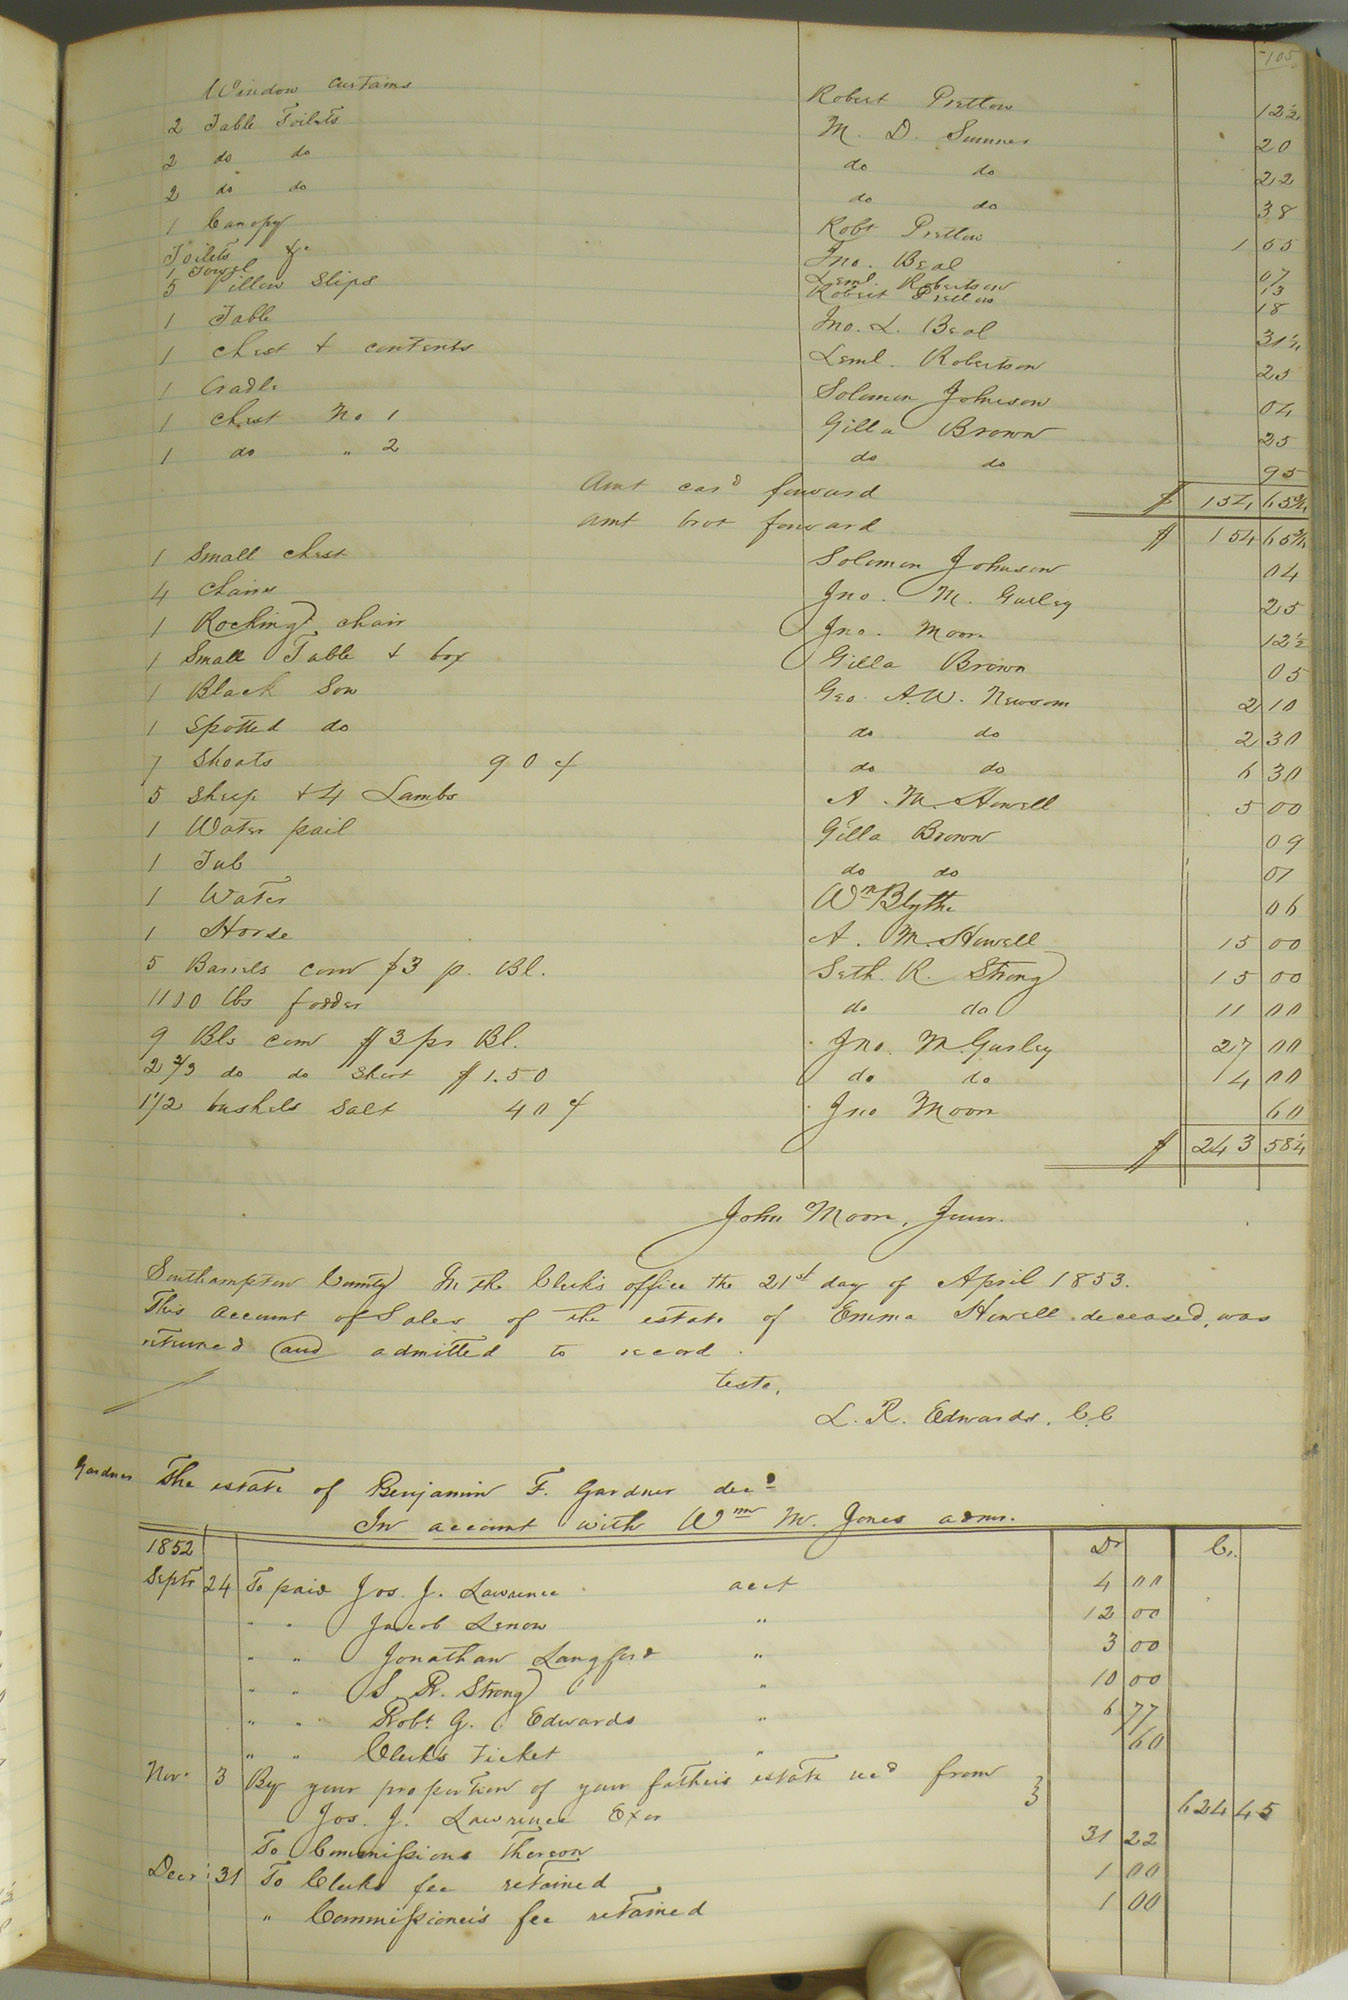 105
Window Curtains Robert Pretlow 12½
2 Table Toilets M. D. Sumner 20
2 do do do do 22
2 do do do do 38
1 Canopy Robt Pretlow 1 55
Toilets &c Jno. Beal 07
1 Towel Leml. Robertson 13
5 Pillow Slips Robert Pretlow 18
1 Table Jno. L. Beal 31¼
1 chest & contents Leml. Robertson 25
1 Cradle Solomon Johnson 04
1 chest No 1 Gilla Brown 25
1 do " 2 do do 95
Amt card forward $ 154 65¾
Amt brot forward $ 154 65¾
1 Small chest Solomon Johnson 04
4 Chairs Jno. M. Gurley 25
1 Rocking chair Jno. Moore 12½
1 Small Table & box Gilla Brown 05
1 Black Sow Geo. A. W. Newsom 2 10
1 Spotted do do do 2 30
7 Shoats 90 ¢ do do 6 30
5 Sheep & 4 Lambs A. M. Howell 5 00
1 Water pail Gilla Brown 09
1 Tub do do 01
1 Water Wm Blythe 06
1 Horse A. M. Howell 15 00
5 Barrels corn $3 p. Bl. Seth. R. Strong 15 00
1100 lbs fodder do do 11 00
9 Bls corn $3 pr Bl. Jno. M. Gurley 27 00
2 2/3 do do Short $1.50 do do 4 00
1 1/2 bushels Salt 40 ¢ Jno Moore 60
$ 243 58¼
John Moore, Junr.
Southampton County In the Clerk's office the 21st day of April 1853.
This account of Sales of the estate of Emma Howell deceased, was
returned and admitted to record.
teste,
L. R. Edwards, C.C
Gardner The estate of Benjamin F. Gardner decd
In account with Wm M. Jones admr.
1852 Dr Cr.
Septr 24 To paid Jos. J. Lawrence acct 4 00
" " Jacob Lenow " 12 00
" " Jonathan Langford " 3 00
" " S. R. Strong " 10 00
" " Robt G. Edwards " 6 77
" " Clerks Ticket " 60
Novr 3 By your proportion of your father's estate recd from
Jos. J. Lawrence Exor 624 45
To Commissions Thereon 31 22
Decr 31 To Clerks fee retained 1 00
" Commissioner's fee retained 1 00